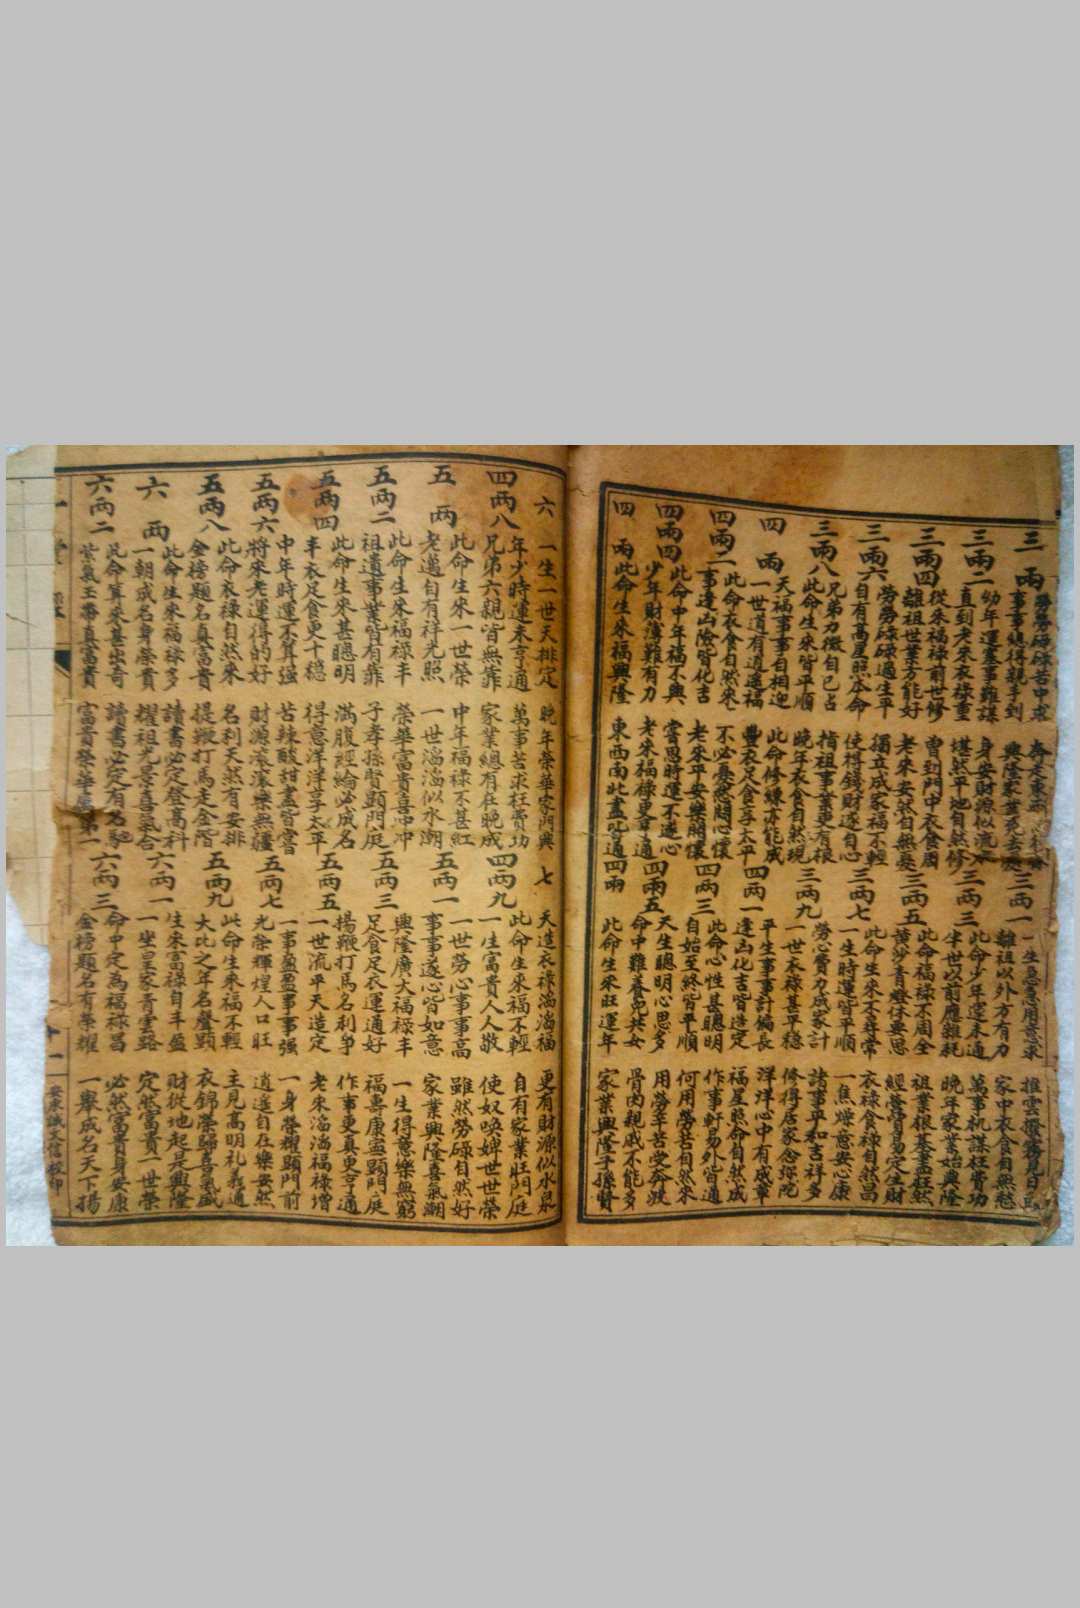 三兩
勞勞碌碌苦中求
奔走東西
事事總得親手到
興隆家業
三兩一
一生急急用意求
推雲撥霧見日
離祖以外方有力
家中衣食自無愁
三兩二
幼年運蹇事難謀
身安財源似流水
一直到老來衣祿重
堪然平地自然修
三兩三
此命少年運未通
萬事机謀枉費功
半世以前應難耗
晚年家業始興隆
三兩四
從來福祿前世修
曾到門中衣食周
離祖世業方能好
老來安然自無憂
三兩五
此命福祿不周全
祖業根基盡枉然
黄沙青燈休要思
經營貿易定生財
三兩六
勞勞碌碌過生平
獨立成家福不輕
自有高星照本命
使得錢財遂自心
三兩七
此命生來不尋常
衣祿食祿自然昌
一生時運皆平順
一焦燥意安心康
三兩八
兄弟力微自己占
指祖事業更有根
此命生來皆平順
晚年衣食自然現
三兩九
勞心費力成家計
諸事平和吉祥多
一世衣祿甚平穩
修得居家念弥陀
四兩
天福事事自相迎
此命修練亦能成
一世道有逍遥福
豐衣足食享太平
四兩一
平生事事計偏長
洋洋心中有成章
逢山化吉皆造定
福星照命自然成
四兩二
此命衣食自然來
不必憂愁悶心懷
事逢山險皆化吉
老來平安樂開懷
四兩三
此命心性甚聰明
作事軒昂外皆通
自始至終皆平順
何用勞苦自然來
四兩四
此命中年福不興
嘗思時運不遂心
少年財薄難有力
老來福祿更亨通
四兩五
天生聰明心思多
用勞辛苦受奔波
命中難養兒共女
骨肉親戚不能多
四兩
此命生來福興隆
東西南北盡吃通
四兩
此命生來旺運年
家業興隆子孫賢
六
一生一世天排定
晚年榮華家門興
七
天造衣祿滔滔福
更有財源似水泉
四兩八
年少時運未亨通
萬事苦求枉費功
兄弟六親皆無靠
家業總有在晚成
四兩九
此命生來福不輕
自有家業旺門庭
一生富貴人人敬
使奴喚婢世世榮
五兩
此命生來一世榮
中年福祿不甚紅
老邁自有祥光照
一世滔滔似水潮
五兩一
一世勞心事事高
雖然勞碌自然好
事事遂心皆如意
家業興隆喜氣潮
五兩二
此命生來福祿丰
榮華富貴喜冲冲
祖遺事業皆有靠
子孝孫賢顯門庭
五兩三
興隆廣大福祿丰
一生得意樂無窮
足食足衣運通好
福壽康寧顯門庭
五兩四
此命生來甚聰明
滿腹經綸必成名
丰衣足食更十穩
得意洋洋享太平
五兩五
揚鞭打馬名利爭
作事更真更亨通
一世流平天造定
老來滔滔福祿增
五兩六
中年時運不算强
苦辣酸甜盡皆嘗
將來老運得的好
財源滚滚樂無疆
五兩七
一事盈盈事事强
一身榮耀顯門前
光榮輝煌人口旺
逍遥自在樂安然
五兩八
此命衣祿自然來
名利天然有安排
金榜題名真富貴
提鞭打馬走金階
五兩九
此命生來福不輕
主見高明礼義通
大比之年名聲顯
衣錦榮歸喜氣盛
六兩
此命生來福祿多
讀書必定登高科
一朝成名身榮貴
耀祖光景喜氣合
六兩一
生來富祿自丰盈
財從地起是興隆
一坐皇家青雲路
定然富貴一世榮
六兩二
此命算來甚出奇
讀書必定有名
紫氣玉帶真富貴
富貴榮華屬第一
六兩三
命中定為福祿昌
必然富貴身安康
金榜題名有榮耀
一舉成名天下揚
十一
安東誠文信校印